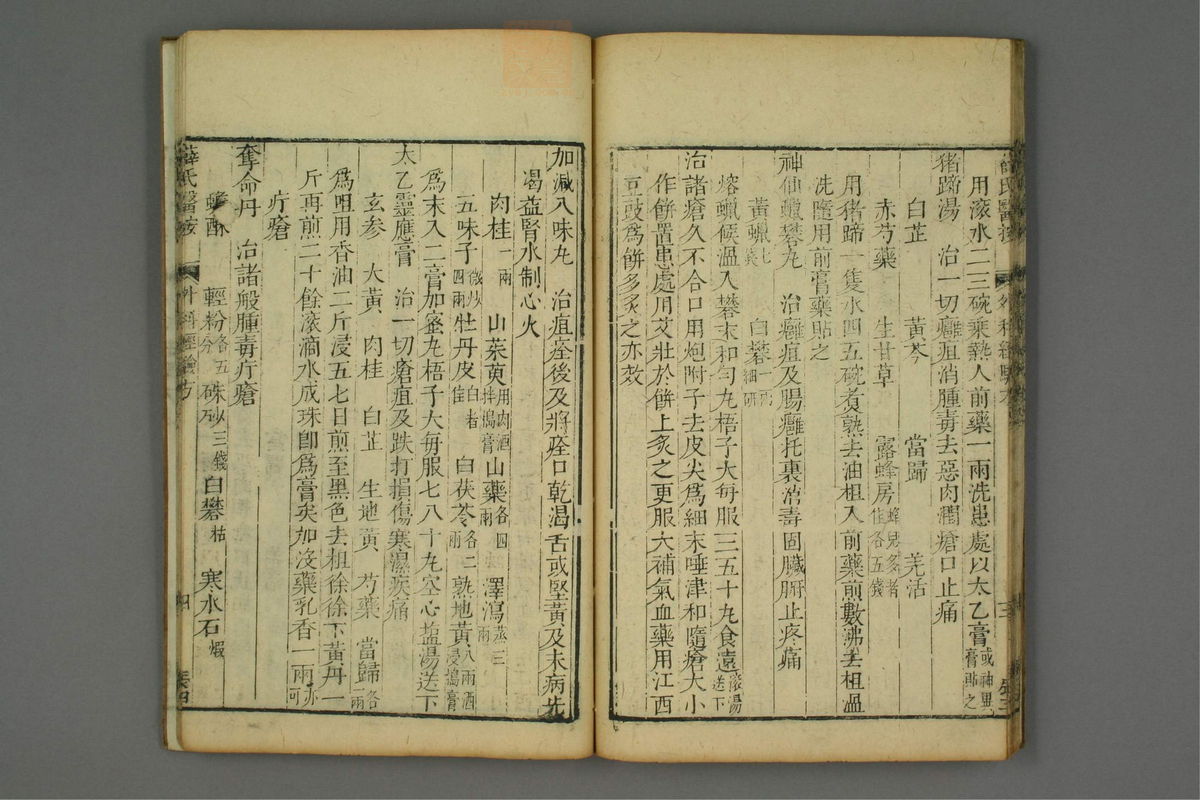 用滚水二三碗乘熱入前藥一兩洗患處以太乙膏或神異膏貼之
猪蹄湯　治一切癰疽消腫毒去惡肉潤瘡口止痛
白芷　黃芩　當歸　羌活
赤芍藥　生甘草　露蜂房蜂兒多者佳各五錢
用猪蹄一隻水四五碗煮熟去油柤入前藥煎數沸去柤溫
洗隨用前膏藥貼之
神仙蠟礬丸　治癰疽及腸癰托裏消毒固臟腑止疼痛
黃蠟七 白礬一 細研
熔蠟候溫入礬末和勻丸梧子大每服三五十丸食遠滚湯送下
治諸瘡久不合口用炮附子去皮尖爲細末唾津和隨瘡大小
作餅置患處用艾壯於餅上炙之更服大補氣血藥用江西
豆豉爲餅多炙之亦效
加減八味丸　治疽痊後及將痊口乾渴舌或堅黃及未病先
渴益腎水制心火
肉桂一兩　山茱萸用肉酒拌搗膏山藥各四兩　澤瀉蒸三兩
五味子微炒四兩牡丹皮白者佳　白茯苓各二兩熟地黃八兩酒浸搗膏
爲末入二膏加蜜丸梧子大每服七八十丸空心塩湯送下
太乙靈應膏　治一切瘡疽及跌打損傷寒濕疾痛
玄參　大黃　肉桂　白芷　生地黃　芍藥　當歸各一兩
爲咀用香油二斤浸五七日煎至黑色去柤徐徐下黃丹一
斤再煎二十餘滚滴水成珠卽爲膏矣加沒藥乳香一兩亦可
疔瘡
奪命丹　治諸般腫毒疔瘡
蟾酥　輕粉各五分硃砂三錢白礬枯　寒水石煅
薛氏醫按　外科經驗方　四